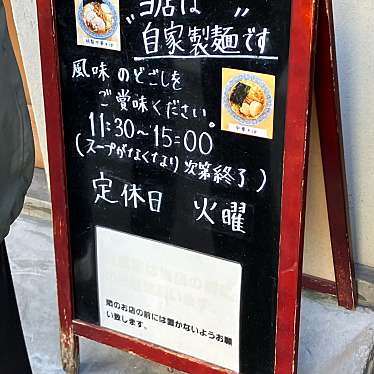 "当店は"
自家製麺です
風味のどごしを
ご賞味ください。
11:30~15:00
(スープがなくなり次第終了)
定休日 火曜
隣のお店の前には置かないようお願
い致します。